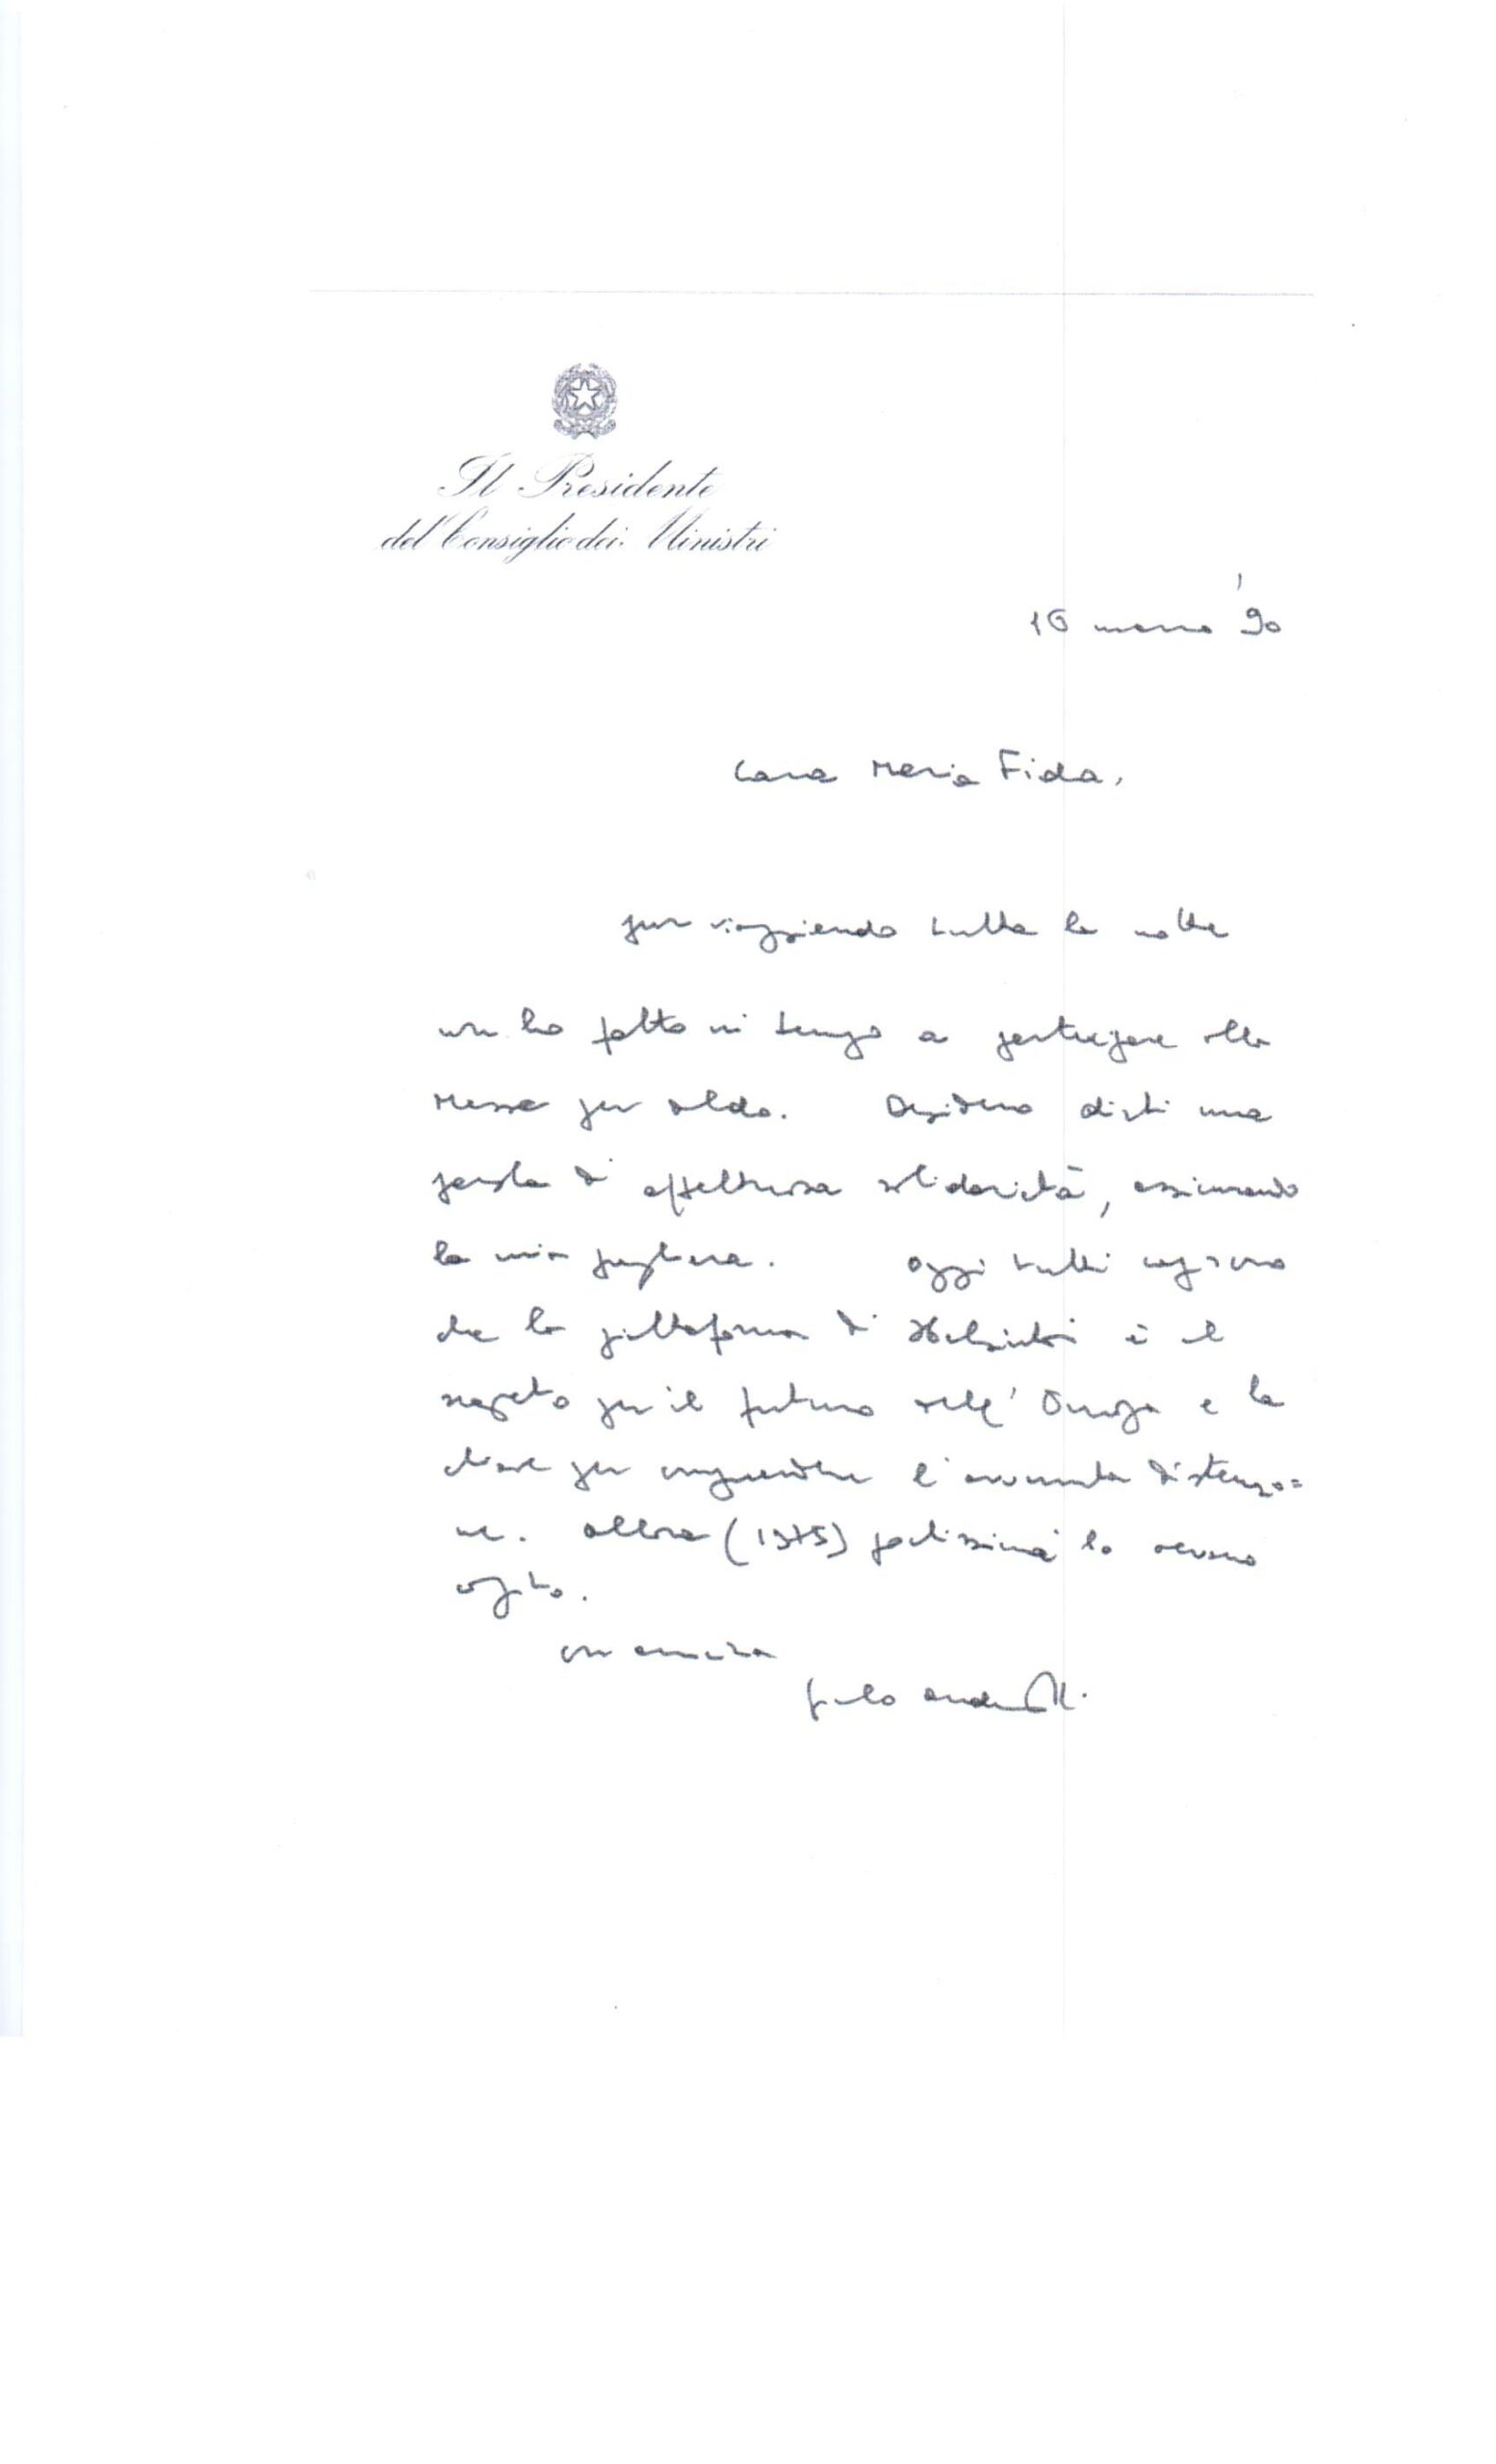 Il Presidente
del Consiglio dei Ministri
16 marzo '90
Cara Maria Fida,
pur viaggiando tutta la notte
non ho fatto in tempo a partecipare alla
Messa per Aldo. Desidero dirti una
parola di affettuosa solidarietà, assicurando
la mia preghiera. Oggi tutti capiscono
che la piattaforma di Helsinki è il
segreto per il futuro dell'Europa e la
chiave per comprendere l'avvenuta distensio=
ne. Allora (1975) pochissimi lo avevano
capito.
con amicizia
Giulio Andreotti.